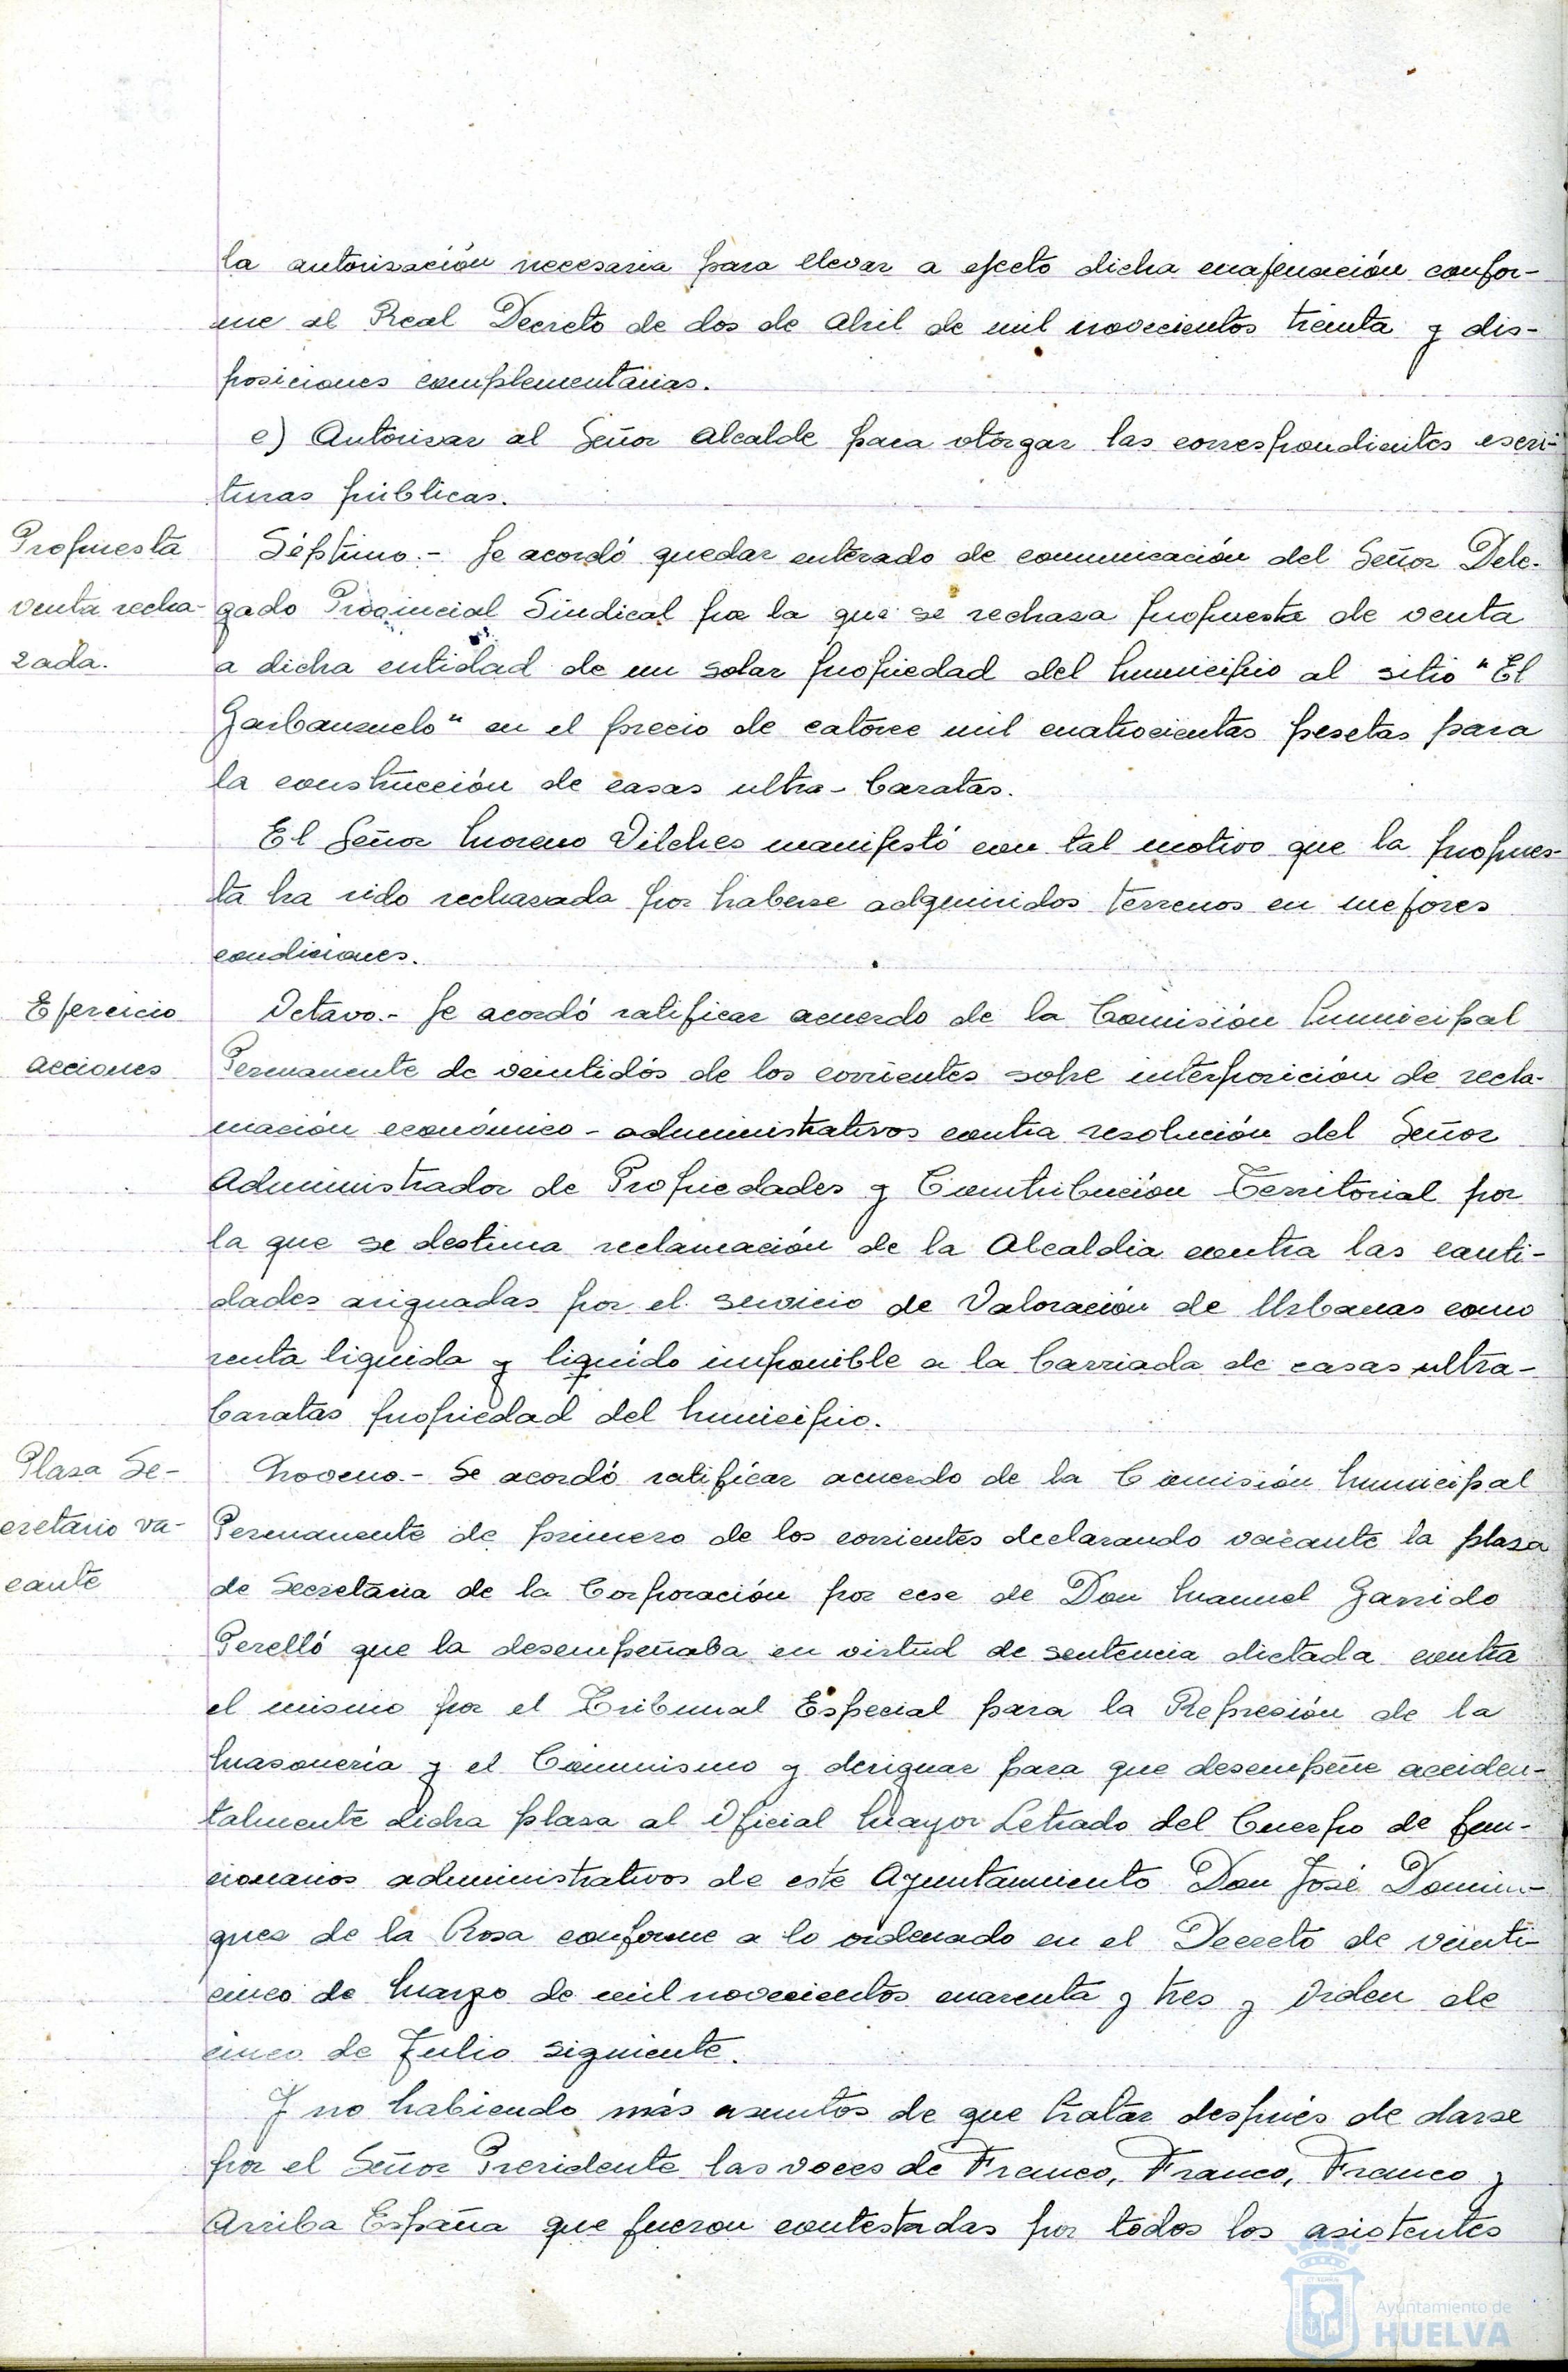 la autorización necesaria para llevar a efecto dicha enajenación confor-
me al Real Decreto de dos de Abril de mil novecientos treinta y dis-
posiciones complementarias.
e) Autorizar al Señor Alcalde para otorgar las correspondientes escri-
turas públicas.
Propuesta
venta recha-
zada.
Séptimo.- Se acordó quedar enterado de comunicación del Señor Dele-
gado Provincial Sindical por la que se rechaza propuesta de venta
a dicha entidad de un solar propiedad del Municipio al sitio "El
Garbanzuelo" en el precio de catorce mil cuatrocientas pesetas para
la construcción de casas ultra-baratas.
El Señor Moreno Vilches manifestó con tal motivo que la propues-
ta ha sido rechazada por haberse adquiridos terrenos en mejores
condiciones.
Ejercicio
acciones
Octavo.- Se acordó ratificar acuerdo de la Comisión Municipal
Permanente de veintidós de los corrientes sobre interposición de recla-
mación económico-administrativos contra resolución del Señor
Administrador de Propiedades y Contribución Territorial por
la que se destima reclamación de la Alcaldia contra las canti-
dades asignadas por el servicio de Valoración de Urbanas como
renta liquida y liquido imponible a la barriada de casas ultra-
baratas propiedad del Municipio.
Plaza Se-
cretario va-
cante
Noveno.- Se acordó ratificar acuerdo de la Comisión Municipal
Permanente de primero de los corrientes declarando vacante la plaza
de Secretaria de la Corporación por cese de Don Manuel Garrido
Perelló que la desempeñaba en virtud de sentencia dictada contra
el mismo por el Tribunal Especial para la Represión de la
Masonería y el Comunismo y designar para que desempeñe acciden-
talmente dicha plaza al Oficial Mayor Letrado del Cuerpo de fun-
cionarios administrativos de este Ayuntamiento Don José Domin-
guez de la Rosa conforme a lo ordenado en el Decreto de veinti-
cinco de Marzo de mil novecientos cuarenta y tres y Orden de
cinco de Julio siguiente.
Y no habiendo más asuntos de que tratar después de darse
por el Señor Presidente las voces de Franco, Franco, Franco y
Arriba España que fueron contestadas por todos los asistentes
Ayuntamiento de
HUELVA